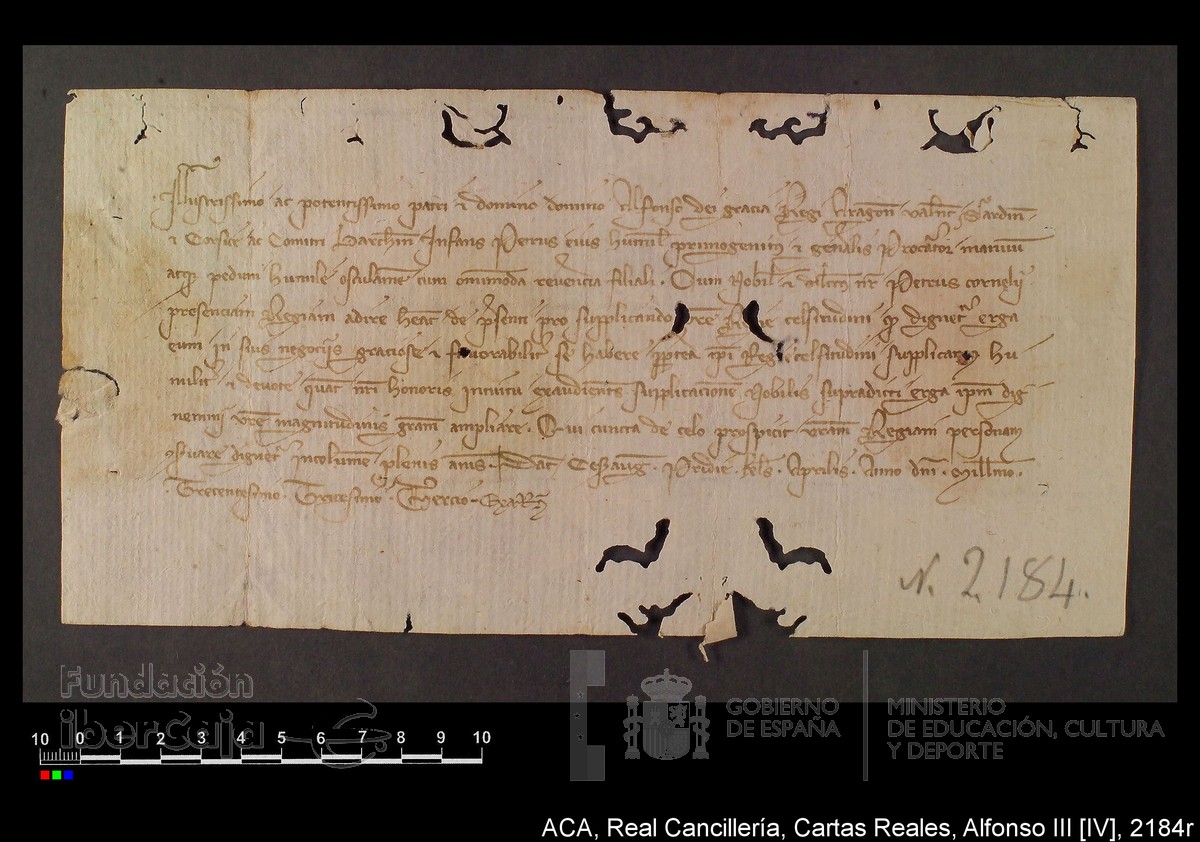 Illustrissimo ac potentissimo patri et domino domino Alfonso dei gracia Regi Aragon Valent Sardin
et Corsice ac Comiti Barchin Infans Petrus eius humil primogenitus et gnalis Procurator manuum
atque pedum humile osculamen cum omnimoda reverencia filiali. Cum Nobil et dilcus nr Petrus cornelii
presenciam Regiam adire heat de psenti pro supplicando vre Regie celsitudini q dignet erga
eum in suis negociis graciose et favorabilit se habere pptea ipi Regie celsitudini supplicamus hu
milit et devote quat nri honoris intuitu exaudientes supplicacionem Nobilis supradicti erga ipm dig
nemini vre magnitudinis gram ampliare. Qui cuncta de celo prospicit vram Regiam personam
conservare dignet incolumem plenis annis. Dat Cesaraug. Pridie. kls. Aprilis. Anno dni. Millmo.
Trecentesimo. Tricesimo. Tercio.
N. 2184.
Fundación
iberCaja
GOBIERNO
DE ESPAÑA
MINISTERIO
DE EDUCACIÓN, CULTURA
Y DEPORTE
10 0 1 2 3 4 5 6 7 8 9 10
ACA, Real Cancillería, Cartas Reales, Alfonso III [IV], 2184r